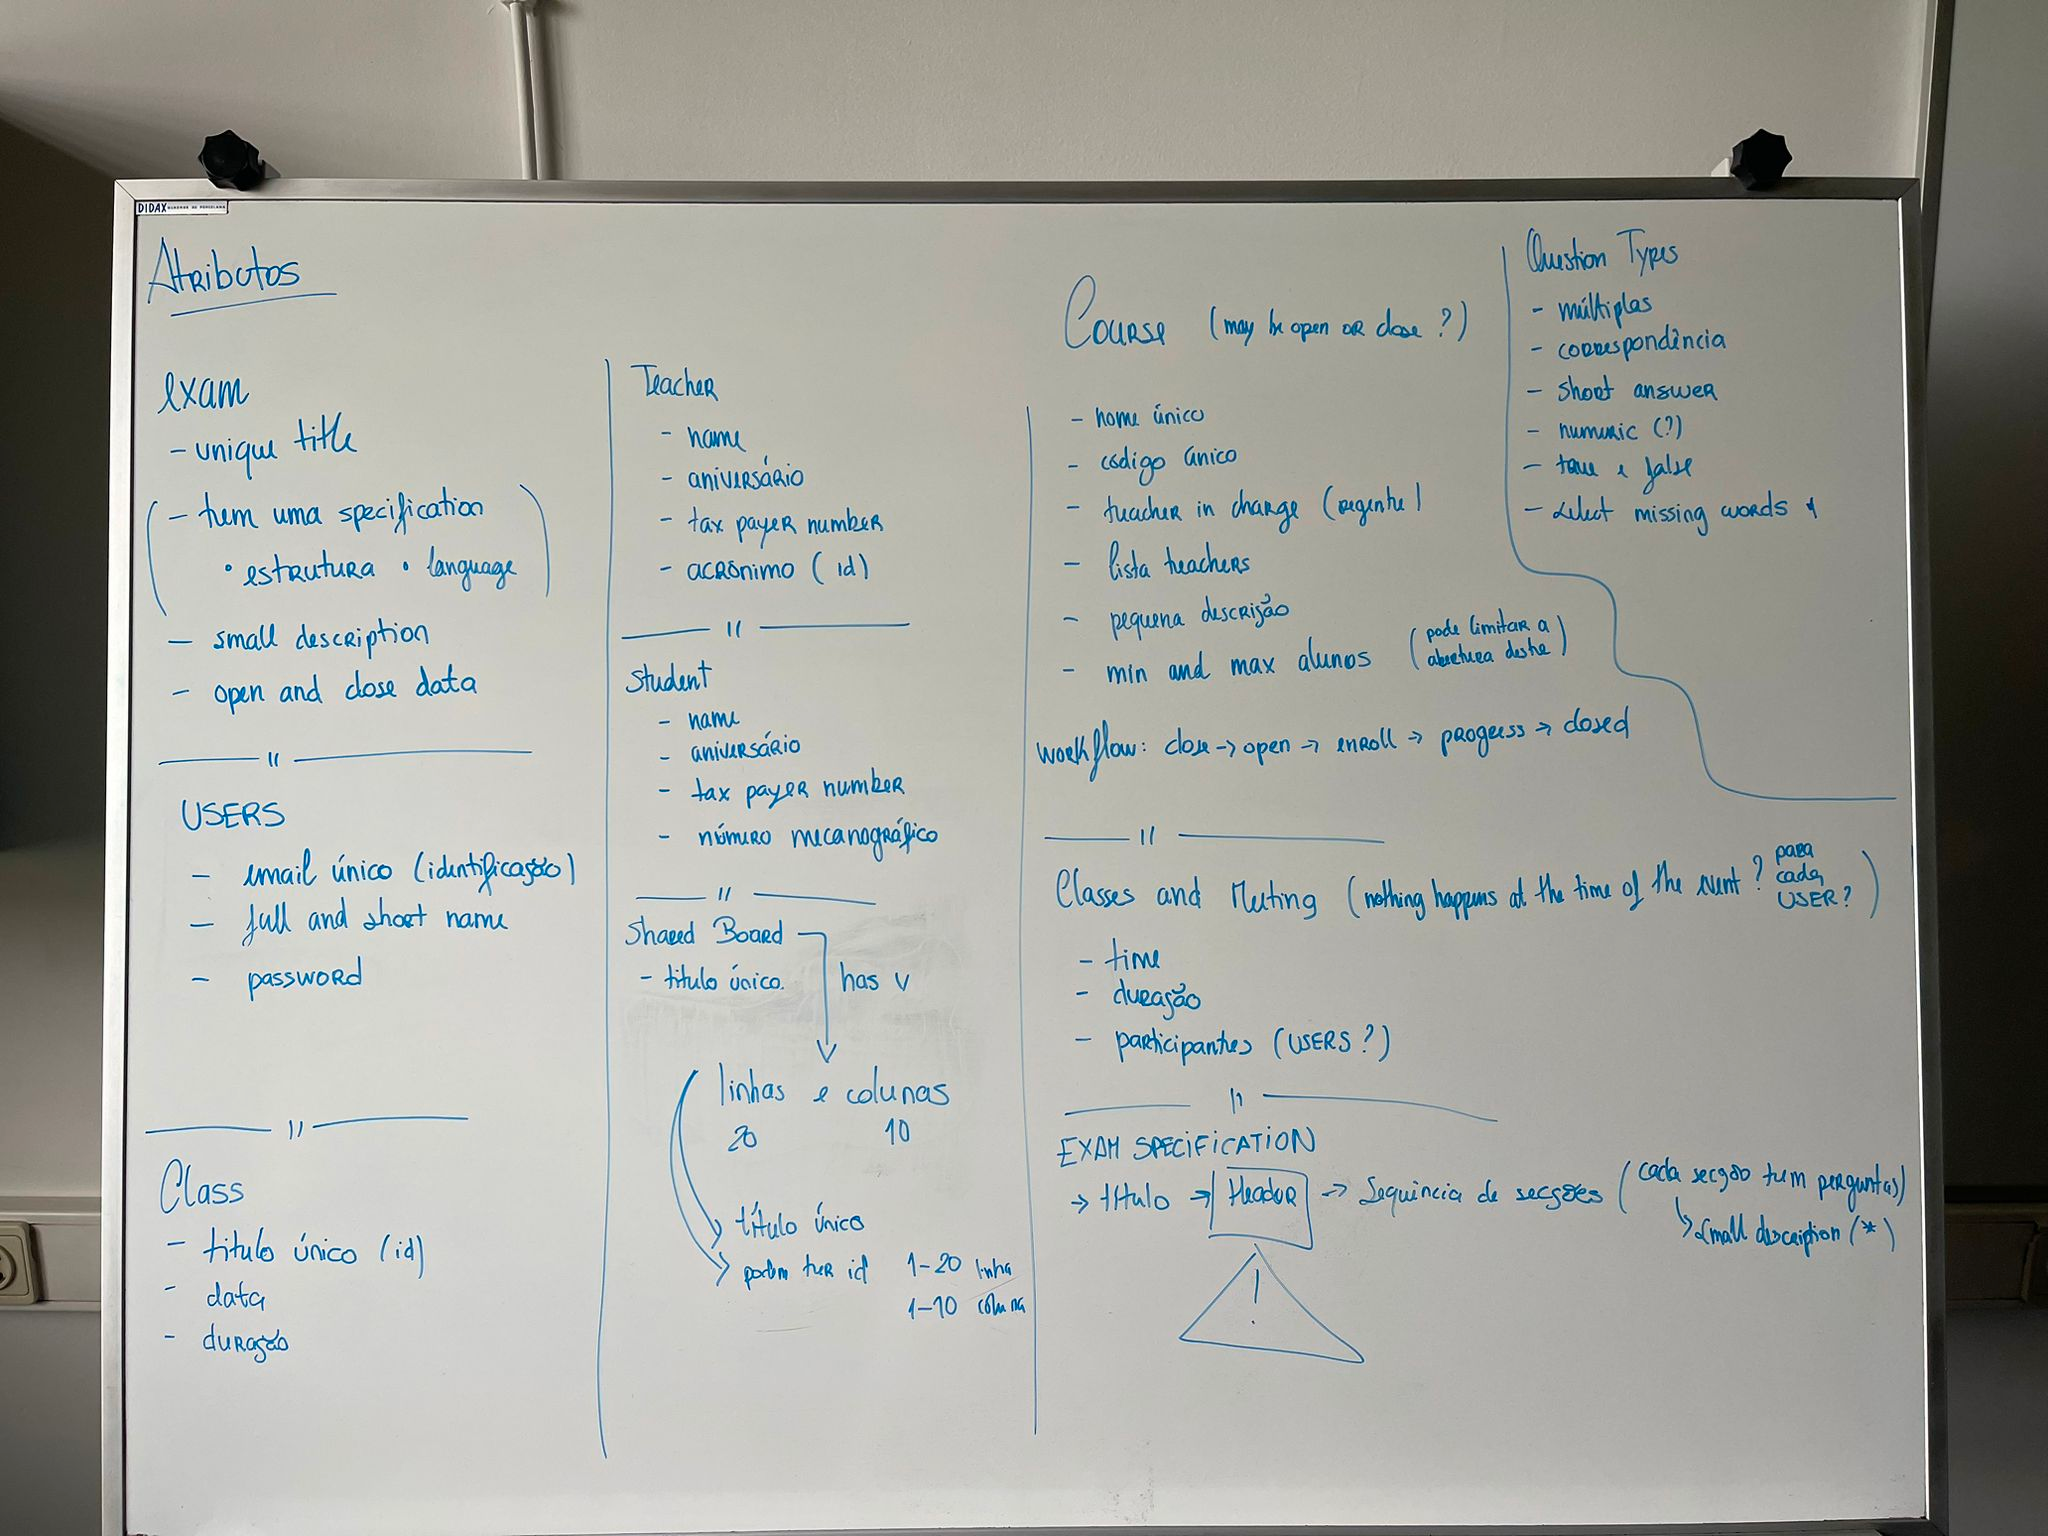 DIDAX QUADROS DE PORCELANA
Atributos
exam
- unique title
( - tem uma specification
• estrutura • language )
- small description
- open and close data
— 11 —
USERS
- email único (identificação)
- full and short name
- password
— 11 —
Class
- titulo único (id)
- data
- duração
Teacher
- name
- aniversário
- tax payer number
- acrónimo (id)
— 11 —
Student
- name
- aniversário
- tax payer number
- número mecanográfico
— 11 —
Shared Board
- titulo único.
has
linhas e colunas
20 10
título único
podem ter id 1-20 linha
1-10 coluna
Course (may be open or close ?)
- nome único
- código único
- teacher in charge (regente)
- lista teachers
- pequena descrição
- min and max alunos (pode limitar a
abertura deste)
workflow: close -> open -> enroll -> progress -> closed
— 11 —
Classes and Meeting (nothing happens at the time of the event ? para
cada
USER?)
- time
- duração
- participantes (USERS ?)
— 11 —
EXAM SPECIFICATION
-> título -> Header -> Sequência de secções (cada secção tem perguntas)
↳ small description (*)
!
Question Types
- múltiplas
- correspondência
- short answer
- numeric (?)
- true e false
- select missing words *